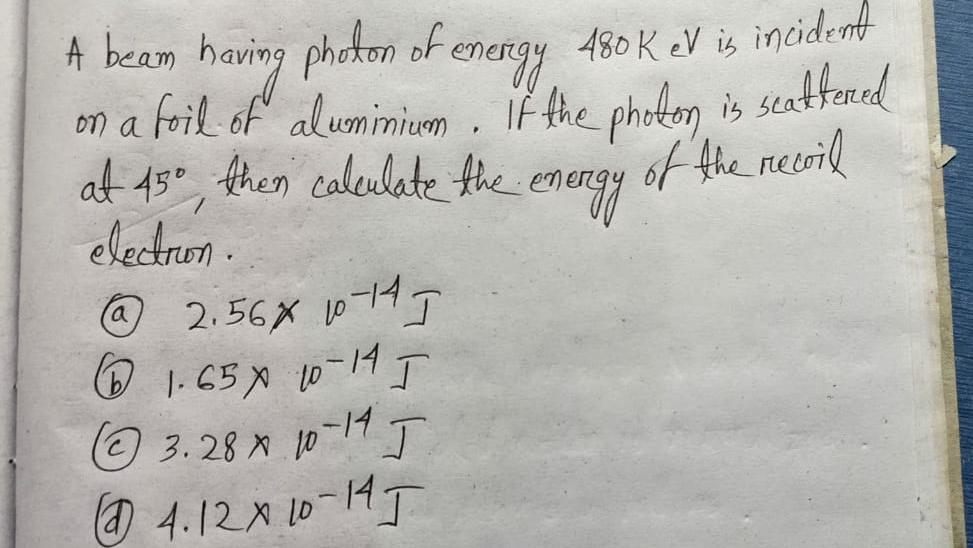 A beam having photon of energy 480 K eV is incident
on a foil of aluminium. If the photon is scattered
at 45°, then calculate the energy of the recoil
electron.
ⓐ 2.56 × 10⁻¹⁴ J
ⓑ 1.65 × 10⁻¹⁴ J
ⓒ 3.28 × 10⁻¹⁴ J
ⓓ 4.12 × 10⁻¹⁴ J